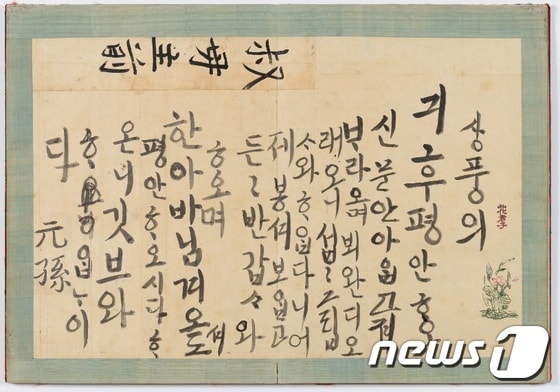 叔母主前
상풍의
긔후평안ᄒᆞ오
신문안아ᄋᆞᆸ고져
ᄇᆞ라오며뵈완디오
래오니섭〻그립
ᄉᆞ와ᄒᆞᄋᆞᆸ다니어
제봉셔보ᄋᆞᆸ고
든〻반갑ᄉᆞ와
ᄒᆞ오며
한아바님겨오셔도
평안ᄒᆞ오시다ᄒᆞ
온니깃브와
ᄒᆞᄋᆞᆸᄂᆞ이
다
元孫
뉴스1